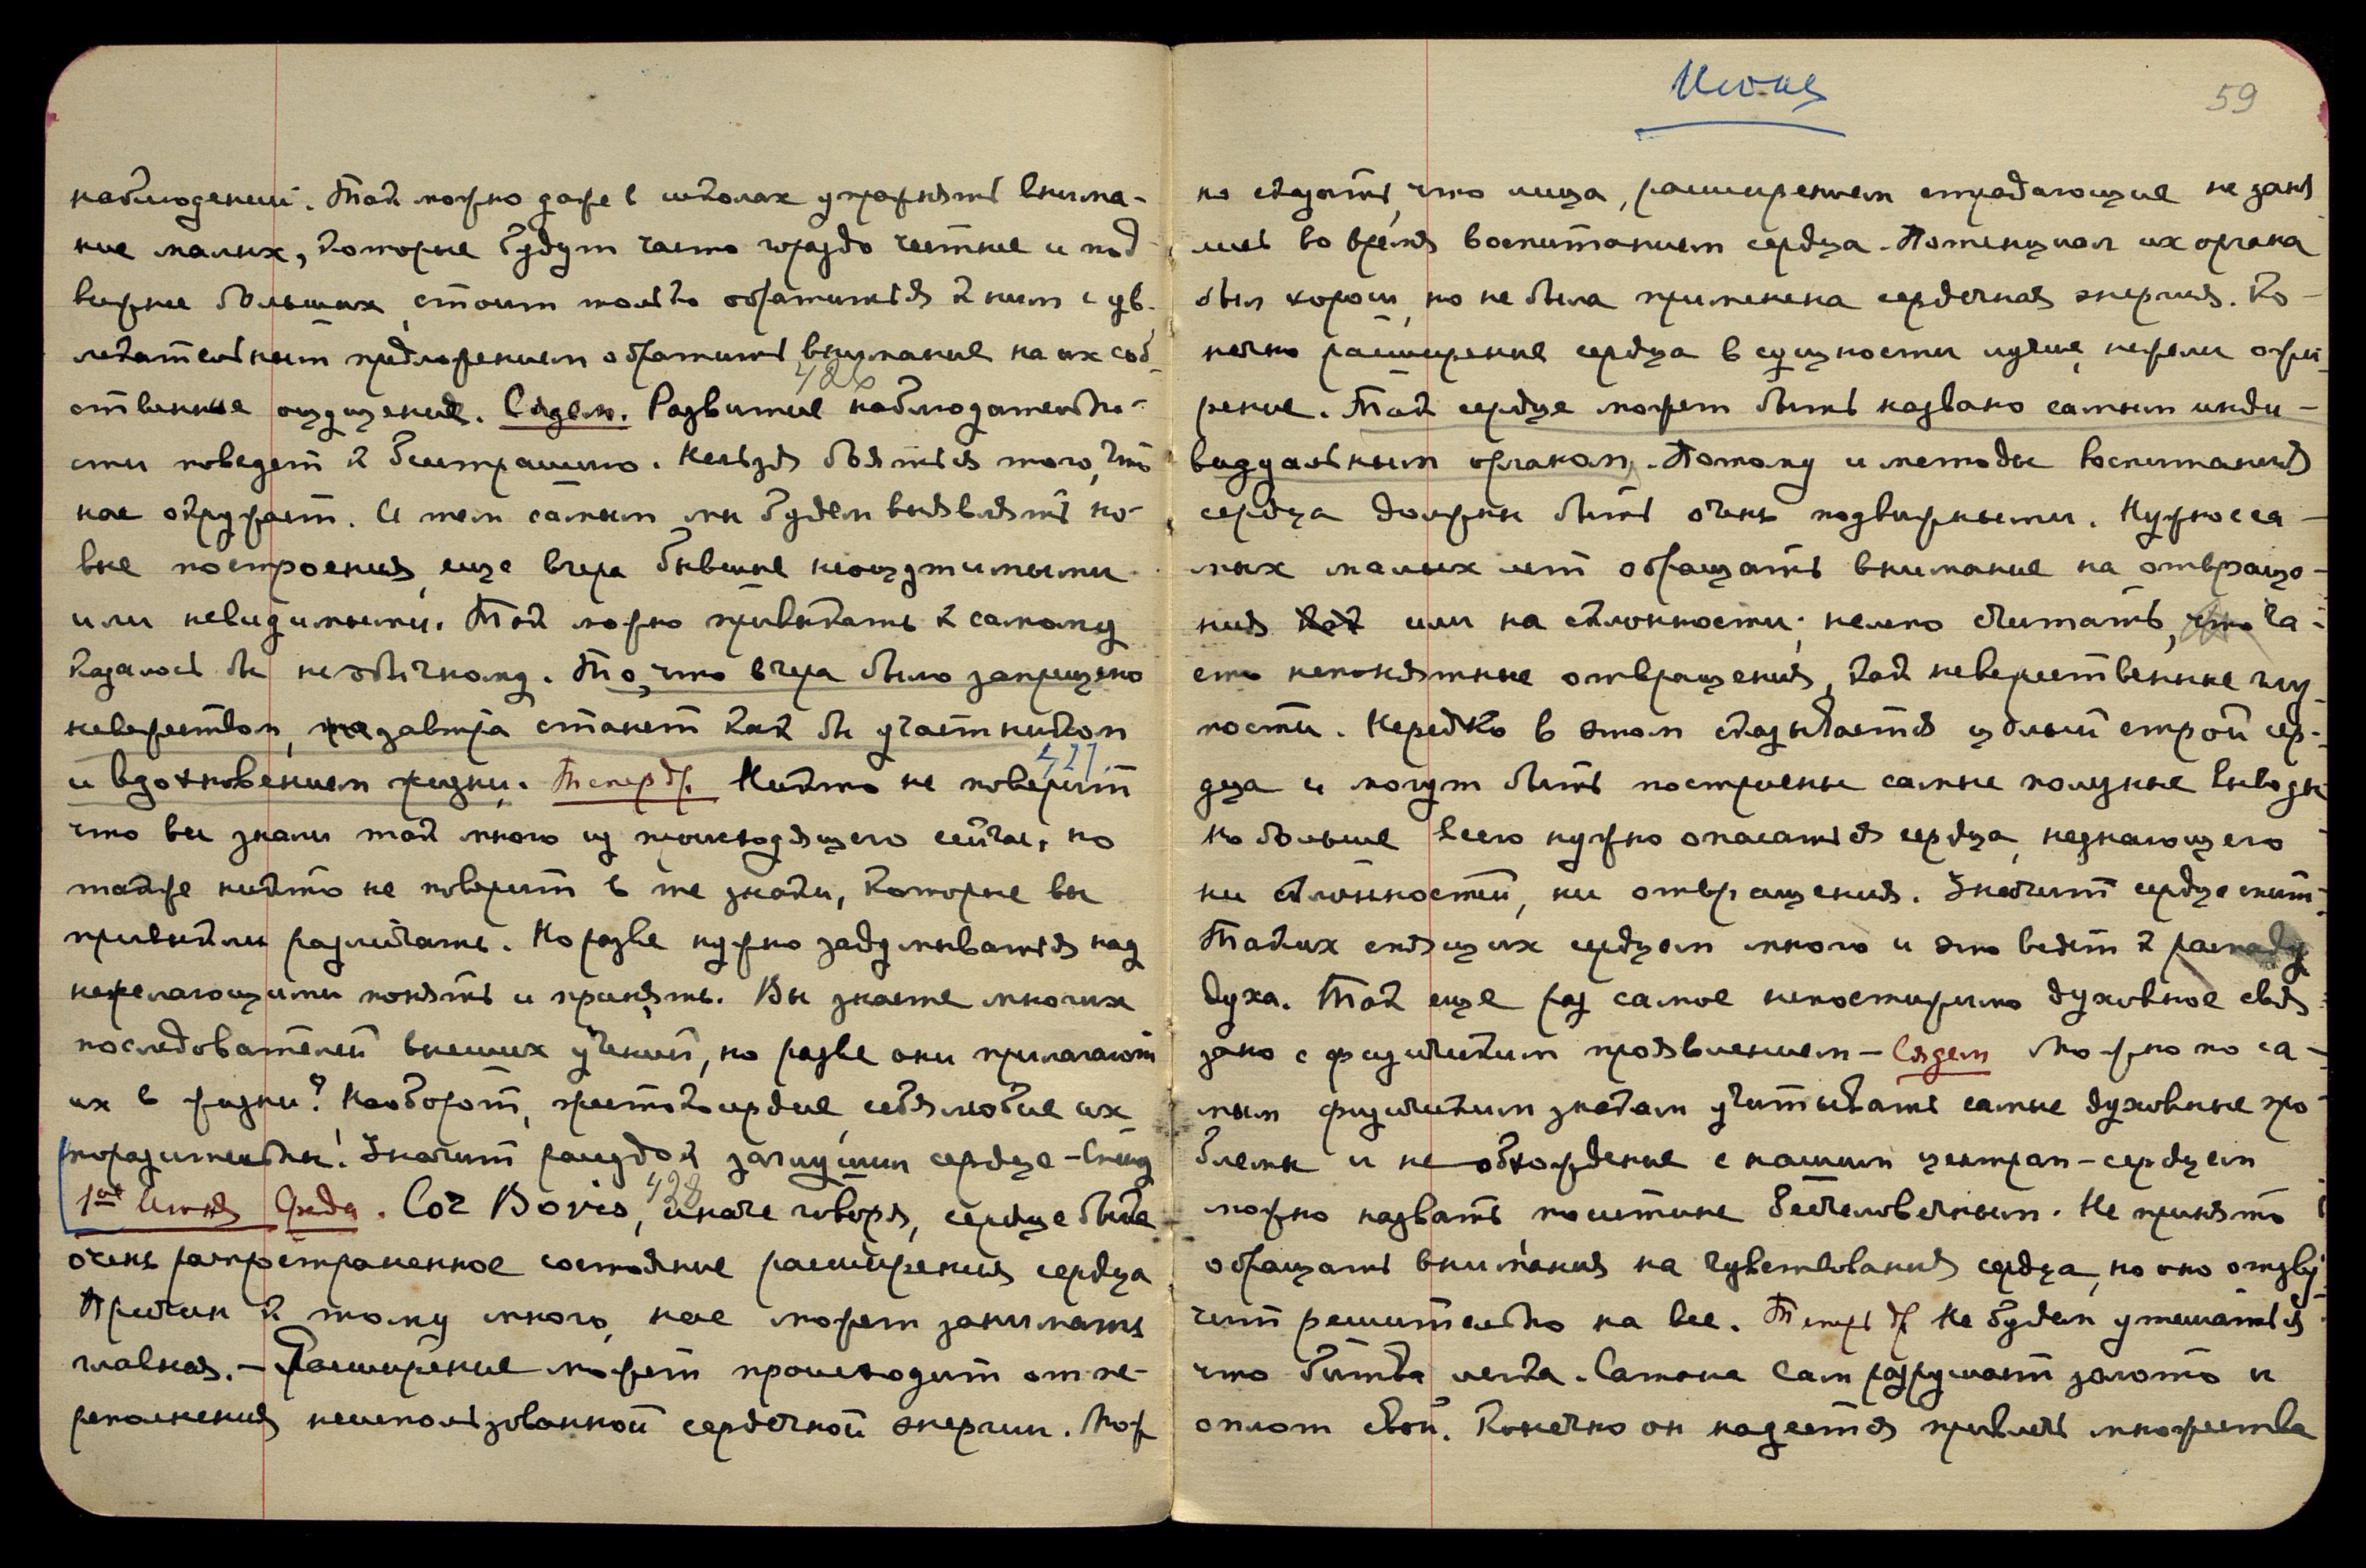 наблюдений. Так можно даже в школах упражнять внима-
ние малых, которые будут часто гораздо честнее и под
вижнее больших, стоит только обратиться к ним с ув-
лекательным предложением обратить внимание на их соб
426
ственные ощущения. Сядем. Развитие наблюдательно-
сти поведет к бесстрашию. Нельзя бояться того, что
нас окружает. И тем самым мы будем выявлять но-
вые построения, еще вчера бывшие неощутимыми
или невидимыми. Так можно привыкать к самому
казалось бы необычному. То, что вчера было запрещено
невежеством, завтра станет как бы участником
427.
и вдохновением жизни. Теперь др. Никто не поверит
что вы знали так много из происходящего сейчас, но
также никто не поверит в те знаки, которые вы
привыкли различать. Но разве нужно задумываться над
нежелающими понять и принять. Вы знаете многих
последователей внешних учений, но разве они прилагают
их в жизни? Наоборот, жестокосердие, себялюбие их
поразительны! Значит раздой заглушил сердце -
428
1ое Июня Среда. Cor Bovis, иначе говоря, сердце быка
очень распространенное состояние расширения сердца
Причин к тому много, нас может занимать
главная. - Расширение может происходит от пе-
реполнения неиспользованной сердечной энергии. Мож
Июня
59
но сказать, что лица, расширением страдающие не заня
лись во время воспитанием сердца. Потенциал их органа
был хорош, но не была применена сердечная энергия. Ко-
нечно расширение сердца в сущности лучше, нежели ожи
рение. Так сердце может быть названо самым инди-
видуальным органом. Потому и методы воспитания
сердца должны быть очень подвижными. Нужно с са-
мых малых лет обращать внимание на отвраще-
ния или на склонности; нелепо считать, ча-
сто непонятные отвращения, как невежественные глу
пости. Нередко в этом сказывается целый строй сер-
дца и могут быть построены самые полезные выводы
но больше всего нужно опасаться сердца, незнающего
ни склонностей, ни отвращения. Значит сердце спит
Таких спящих сердцем много и это ведет к распаду
духа. Так еще раз самое непостижимо духовное свя
зано с физическим проявлением - Сядем Можно по са-
мым физическим знакам учитывать самые духовные про
блемы и не обхождение с нашим центром - сердцем
можно назвать поистине бесчеловечным. Не принято
обращать внимания на чувствования сердца, но оно отзву
чит решительно на все. Теперь др Не будем утешаться
что битва легка. Сатана сам разрушает золото и
оплот свой. Конечно он надеется привлечь множества